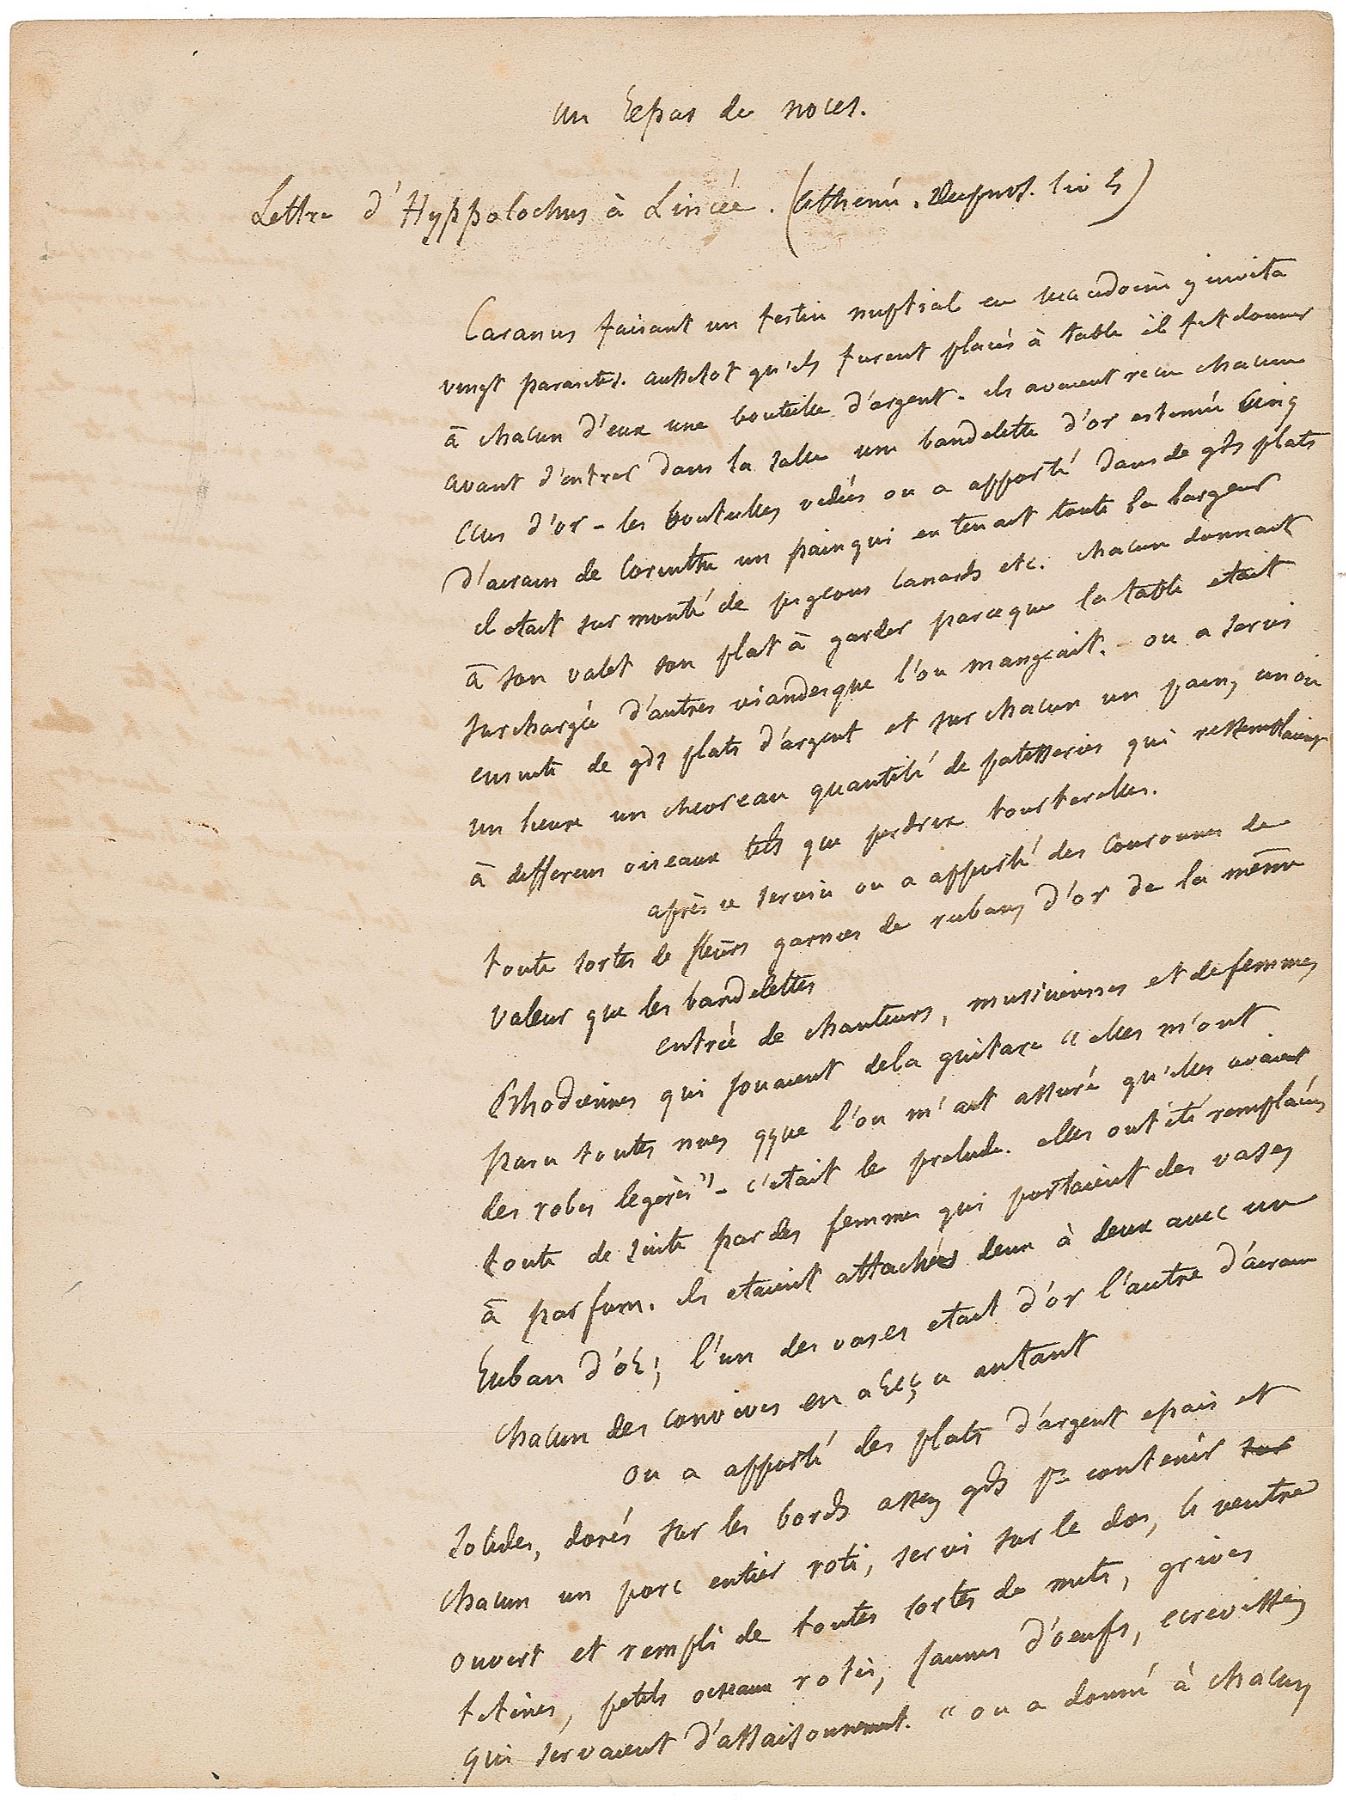 un Repas de noces.
Lettre d'Hyppolochus à Lincée. (Athené. Deipnos. liv 4)
Caranus faisant un festin nuptial en Macedoine y invita
vingt parasites. aussitot qu'ils furent placés à table il fit donner
à chacun d'eux une bouteille d'argent. ils avaient recu chacun
avant d'entrer dans la salle une bandelette d'or estimée cinq
ecus d'or - les bouteilles vidées on a apporté dans de gds plats
d'airain de Corinthe un pain qui en tenait toute la largeur
il etait surmonté de pigeons canards etc. chacun donnait
à son valet son plat à garder parceque la table etait
surchargée d'autres viandes que l'on mangeait. - on a servi
ensuite de gds plats d'argent et sur chacun un pain, un oie
un lievre un chevreau quantité de patisseries qui ressemblaient
à differens oiseaux tels que perdrix tourterelles.
après ce service on a apporté des couronnes de
toute sortes de fleurs garnies de rubans d'or de la même
valeur que les bandelettes
entrée de chanteurs, musiciennes et de femmes
Rhodiennes qui jouaient de la guitare "elles m'ont
paru toutes nues qque l'on m'ait assuré qu'elles avaient
des robes legères" - c'etait le prelude. elles ont été remplacées
toute de suite par des femmes qui portaient des vases
à parfum. ils etaient attachés deux à deux avec un
Ruban d'oR; l'un des vases etait d'or l'autre d'airain
chacun des convives en a Reçu autant
on a apporté des plats d'argent epais et
solides, dorés sur les bords assez gds pr contenir sur
chacun un porc entier roti, servi sur le dos, le ventre
ouvert et rempli de toutes sortes de mets, grives
tetines, petits oiseaux rotis, jaunes d'oeufs, ecrevisses
qui servaient d'assaisonnement. "on a donné à chacun